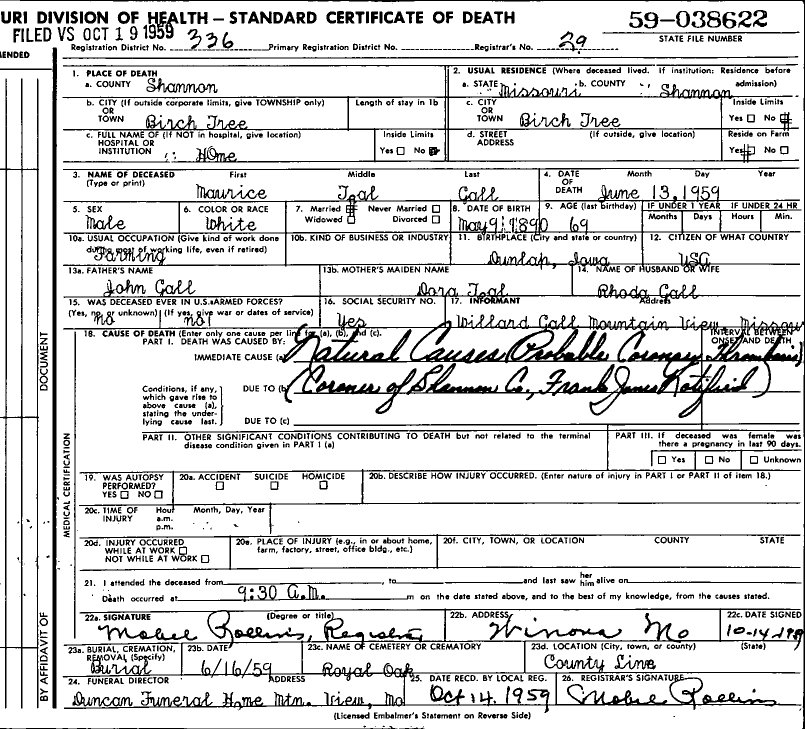 URI DIVISION OF HEALTH — STANDARD CERTIFICATE OF DEATH 59-038622
FILED VS OCT 19 1959 STATE FILE NUMBER
Registration District No. 336 Primary Registration District No. Registrar's No. 29
ENDED
1. PLACE OF DEATH 2. USUAL RESIDENCE (Where deceased lived. If institution: Residence before admission)
a. COUNTY Shannon a. STATE Missouri b. COUNTY Shannon
b. CITY (If outside corporate limits, give TOWNSHIP only) Length of stay in 1b c. CITY Inside Limits
OR TOWN Birch Tree OR TOWN Birch Tree Yes No
c. FULL NAME OF (If NOT in hospital, give location) Inside Limits d. STREET ADDRESS (If outside, give location) Reside on Farm
HOSPITAL OR INSTITUTION Home Yes No Yes No
3. NAME OF DECEASED First Middle Last 4. DATE OF DEATH Month Day Year
(Type or print) Maurice Gall June 13, 1959
5. SEX 6. COLOR OR RACE 7. Married Never Married 8. DATE OF BIRTH 9. AGE (last birthday) IF UNDER 1 YEAR IF UNDER 24 HR
Male White Widowed Divorced May 9, 1890 69 Months Days Hours Min.
10a. USUAL OCCUPATION (Give kind of work done during most of working life, even if retired) 10b. KIND OF BUSINESS OR INDUSTRY 11. BIRTHPLACE (City and state or country) 12. CITIZEN OF WHAT COUNTRY
Farming Dunlap, Iowa USA
13a. FATHER'S NAME 13b. MOTHER'S MAIDEN NAME 14. NAME OF HUSBAND OR WIFE
John Gall Dora Rhoda Gall
15. WAS DECEASED EVER IN U.S. ARMED FORCES? 16. SOCIAL SECURITY NO. 17. INFORMANT Address
(Yes, no, or unknown) (If yes, give war or dates of service)
no no Yes Willard Gall Mountain View, Missouri
18. CAUSE OF DEATH (Enter only one cause per line for (a), (b), and (c). INTERVAL BETWEEN ONSET AND DEATH
PART I. DEATH WAS CAUSED BY:
IMMEDIATE CAUSE (a) Natural Causes (Probable Coronary Thrombosis)
Conditions, if any, which gave rise to above cause (a), stating the underlying cause last. DUE TO (b) (Coroner of Shannon Co, Frank James Notified)
DUE TO (c)
PART II. OTHER SIGNIFICANT CONDITIONS CONTRIBUTING TO DEATH but not related to the terminal disease condition given in PART I (a) PART III. If deceased was female was there a pregnancy in last 90 days.
Yes No Unknown
19. WAS AUTOPSY PERFORMED? YES NO 20a. ACCIDENT SUICIDE HOMICIDE 20b. DESCRIBE HOW INJURY OCCURRED. (Enter nature of injury in PART I or PART II of item 18.)
20c. TIME OF INJURY Hour a.m. p.m. Month, Day, Year
20d. INJURY OCCURRED WHILE AT WORK NOT WHILE AT WORK 20e. PLACE OF INJURY (e.g., in or about home, farm, factory, street, office bldg., etc.) 20f. CITY, TOWN, OR LOCATION COUNTY STATE
21. I attended the deceased from , to and last saw her him alive on
Death occurred at 9:30 A.M. m on the date stated above, and to the best of my knowledge, from the causes stated.
22a. SIGNATURE (Degree or title) 22b. ADDRESS 22c. DATE SIGNED
Mabel Rollins, Registrar Winona Mo 10-14-
23a. BURIAL, CREMATION, REMOVAL (Specify) 23b. DATE 23c. NAME OF CEMETERY OR CREMATORY 23d. LOCATION (City, town, or county) (State)
Burial 6/16/59 Royal Oak County Line
24. FUNERAL DIRECTOR ADDRESS 25. DATE RECD. BY LOCAL REG. 26. REGISTRAR'S SIGNATURE
Duncan Funeral Home Mtn. View, Mo Oct 14, 1959 Mabel Rollins
(Licensed Embalmer's Statement on Reverse Side)
DOCUMENT
MEDICAL CERTIFICATION
BY AFFIDAVIT OF